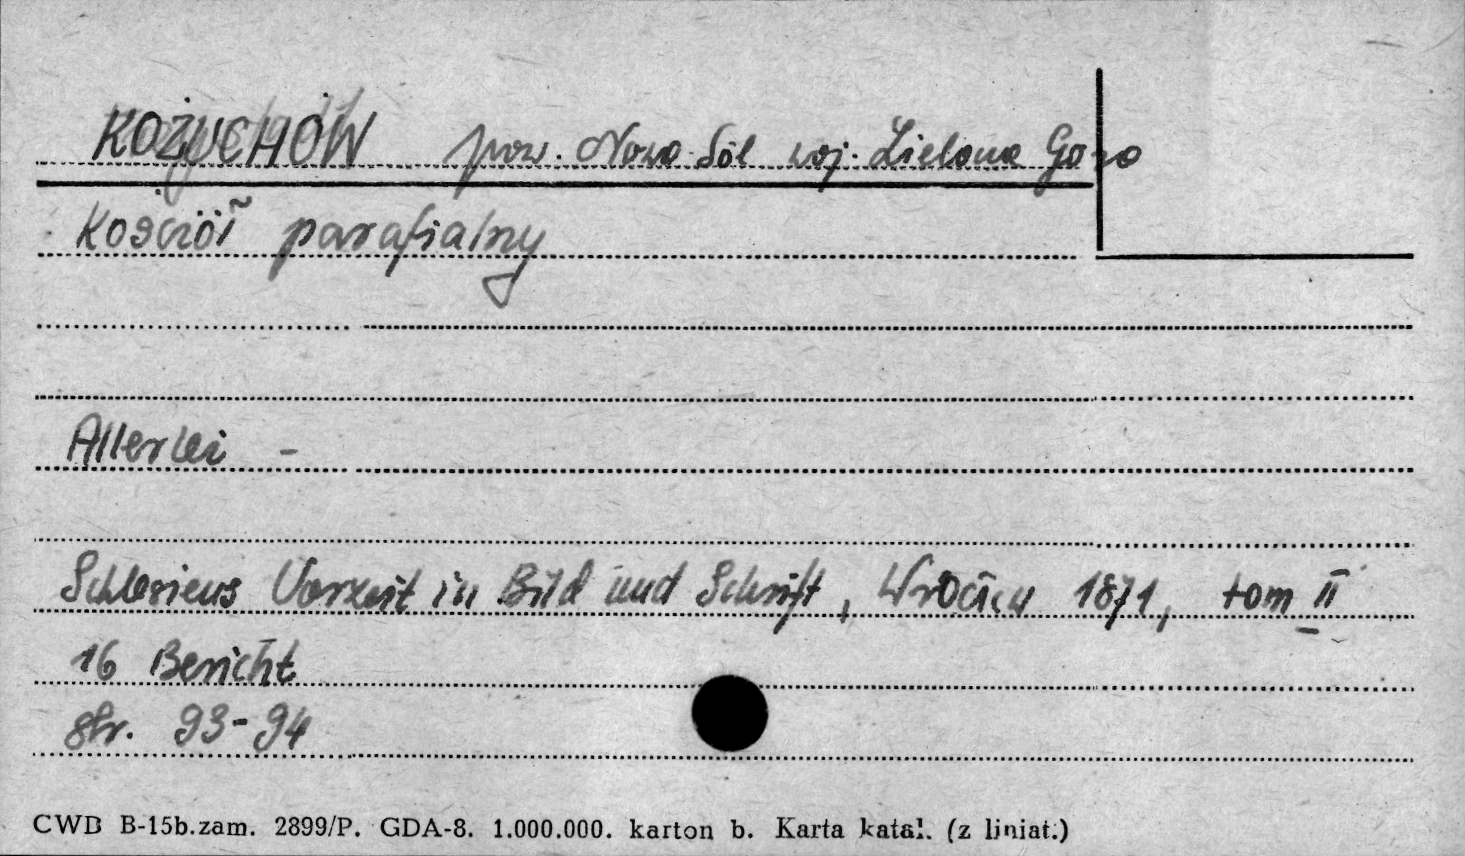 KOŻUCHÓW pow. Nowa Sól woj. Zielona Góra
Kościół parafialny
Allerlei -
Schlesiens Vorzeit in Bild und Schrift, Wrocław 1871, tom II
16 Bericht
str. 93-94
CWD B-15b.zam. 2899/P. GDA-8. 1.000.000. karton b. Karta katal. (z liniat.)